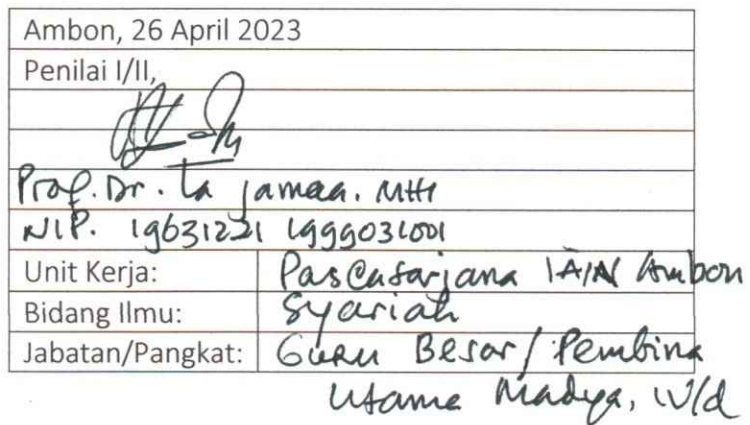 Ambon, 26 April 2023
Penilai I/II,
Prof. Dr. La Jamaa. MHI
NIP. 19631221 199903 1001
Unit Kerja: Pascasarjana IAIN Ambon
Bidang Ilmu: Syariah
Jabatan/Pangkat: Guru Besar / Pembina
Utama Madya, IV/d